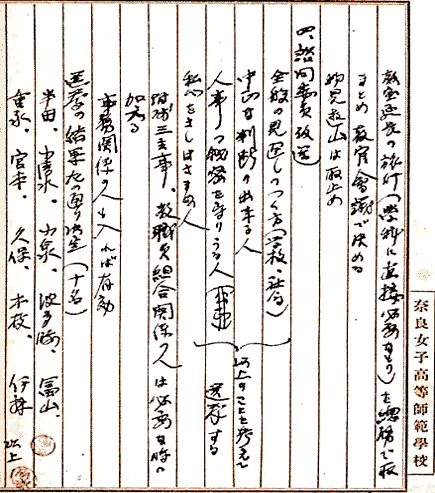 教室延長の旅行(学科に直接必要なもの)を総務で取
まとめ教官会議で決める
物見遊山は取止め
四、諮問委員改選
全般の見通しのつく方(学校、社会)
中正な判断の出来る人
人事の秘密を守りうる人
私心をさしはさまぬ人
以上のことを考えて
選挙する
 三主事、教職員組合関係の人は必要な時に
加わる
事務関係の人も入れば有効
選挙の結果左の通り決定(十名)
半田、小清水、小泉、波多腰、富山、
重永、宮本、久保、木枝、伊藤
以上
奈良女子高等師範學校